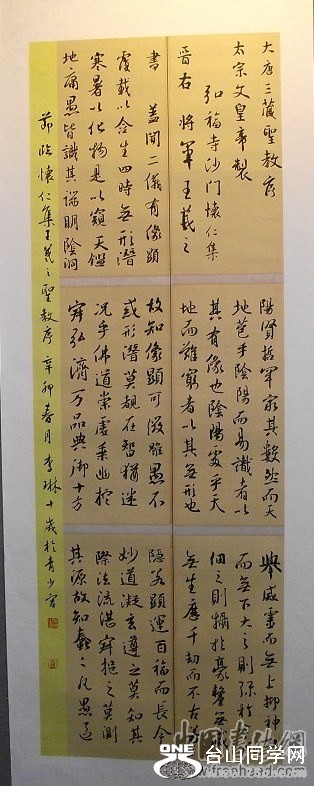 大唐三藏聖教序
太宗文皇帝製
弘福寺沙門懷仁集
晉右將軍王羲之
書 蓋聞二儀有像顯
覆載以含生四時無形潛
寒暑以化物是以窺天鑑
地庸愚皆識其端明陰洞
陽賢哲罕窮其數然而天
地苞乎陰陽而易識者以
其有像也陰陽處乎天
地而難窮者以其無形也
故知像顯可徵雖愚不
惑形潛莫覩在智猶迷
況乎佛道崇虛乘幽控
寂弘濟万品典御十方
舉威靈而無上抑神
而無下大之則弥於
細之則攝於豪氂無
無生歷千劫而不古
隱若顯運百福而長今
妙道凝玄遵之莫知其
際法流湛寂挹之莫測
其源故知蠢々凡愚區
節臨懷仁集王羲之聖教序 辛卯春月 李琳十歲於青少宮
ONE 台山同学网